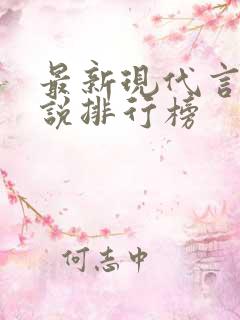 最新现代言
说排行榜
何志中